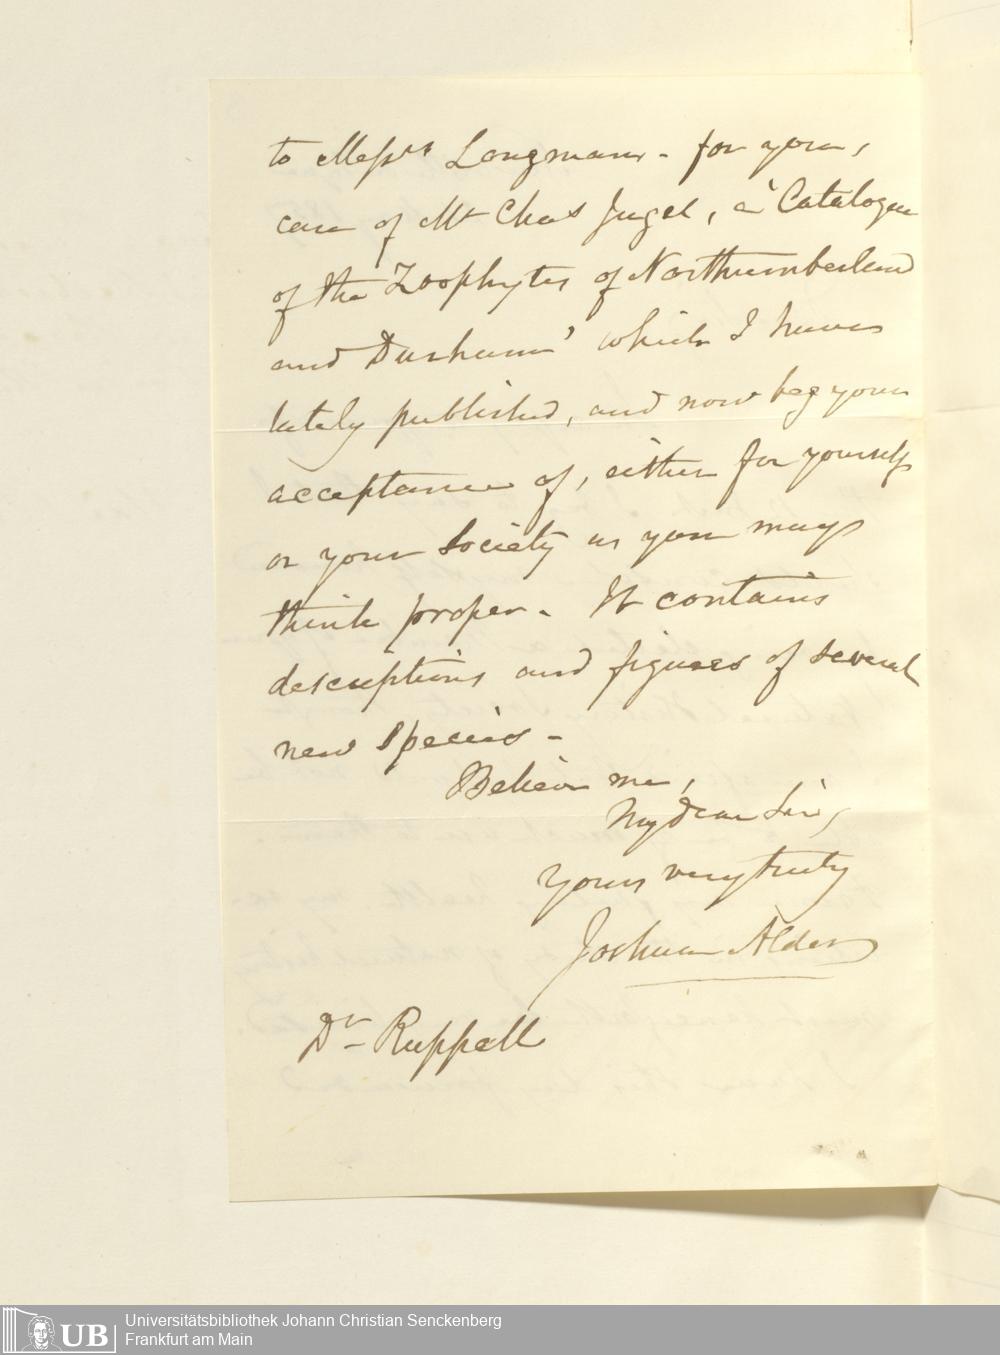 to Messrs Longmans - for you,
care of Mr Chas Jugel, a 'Catalogue
of the Zoophytes of Northumberland
and Durham' which I have
lately published, and now beg your
acceptance of, either for yourself
or your Society as you may
think proper - It contains
descriptions and figures of several
new species -
Believe me,
My dear Sir,
Yours very truly
Joshua Alder
Dr Ruppell
UB
Universitätsbibliothek Johann Christian Senckenberg
Frankfurt am Main